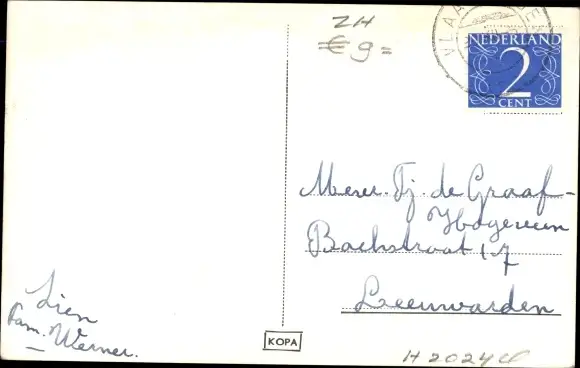 ZH
€ 9 =
VLAA
NEDERLAND
2
CENT
Mevr. Tj. de Graaf-
Hogeveen
Bachstraat 17
Leeuwarden
Lien
Fam. Werner.
KOPA
H 2024